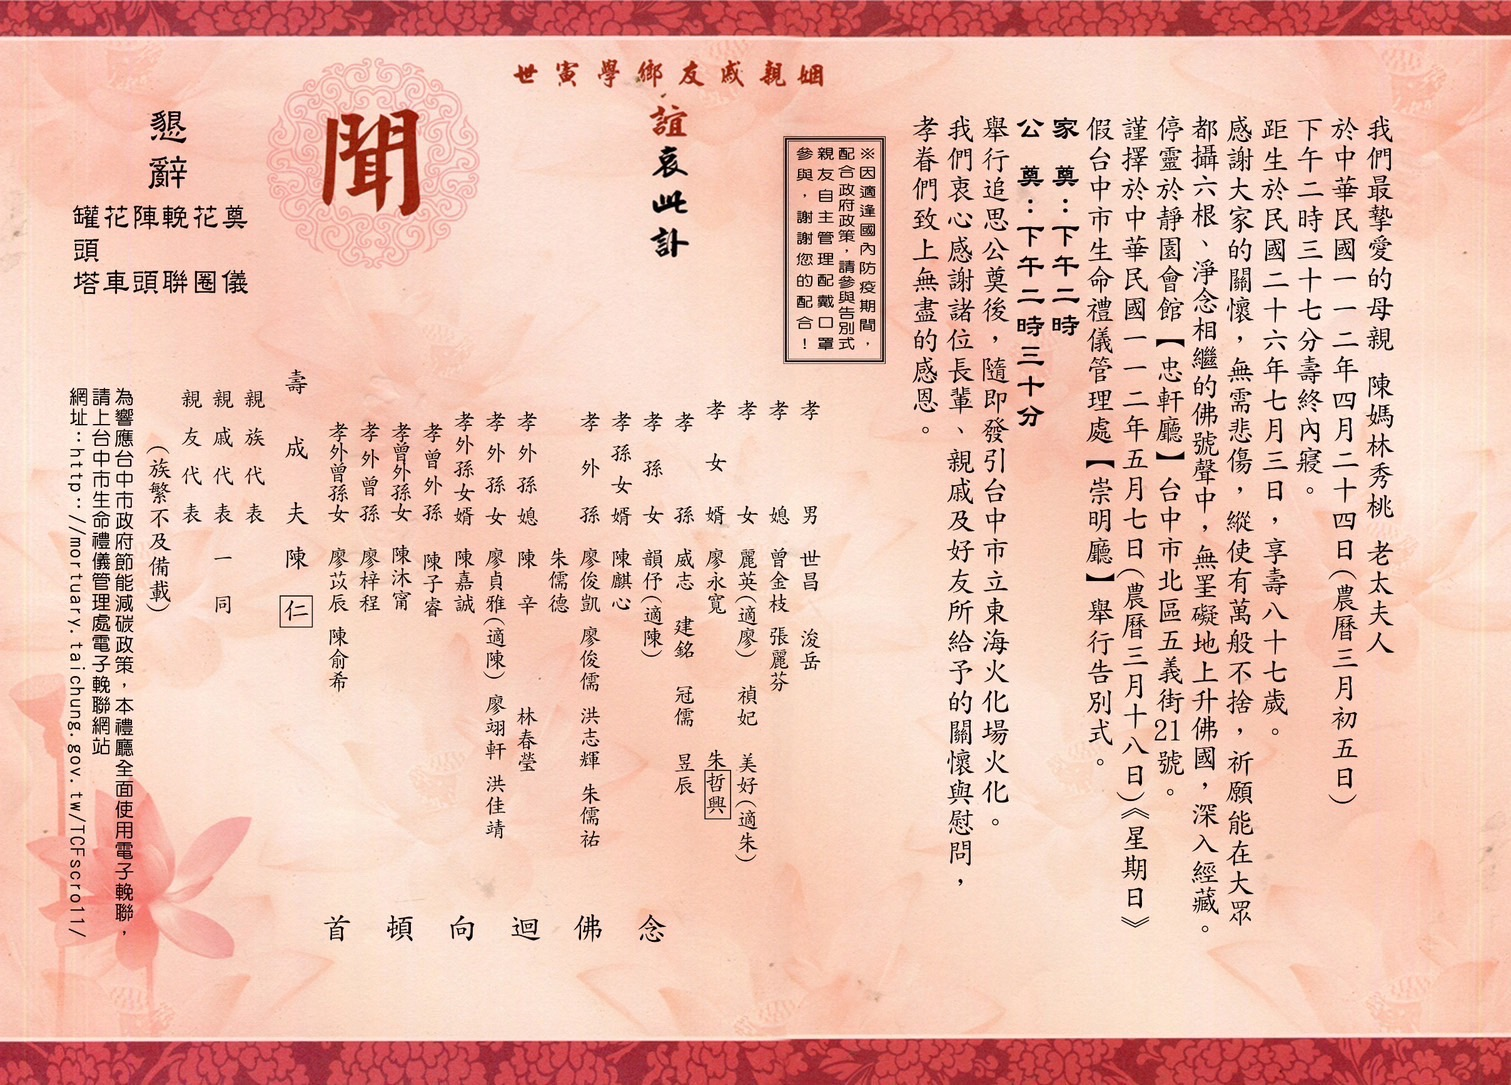 我們最摯愛的母親 陳媽林秀桃 老太夫人
於中華民國一一二年四月二十四日(農曆三月初五日)
下午二時三十七分壽終內寢。
距生於民國二十六年七月三日，享壽八十七歲。
感謝大家的關懷，無需悲傷，縱使有萬般不捨，祈願能在大眾
都攝六根、淨念相繼的佛號聲中，無罣礙地上升佛國，深入經藏。
停靈於靜園會館【忠軒廳】台中市北區五義街21號。
謹擇於中華民國一一二年五月七日(農曆三月十八日)《星期日》
假台中市生命禮儀管理處【崇明廳】舉行告別式。
家 奠：下午二時
公 奠：下午二時三十分
舉行追思公奠後，隨即發引台中市立東海火化場火化。
我們衷心感謝諸位長輩、親戚及好友所給予的關懷與慰問，
孝眷們致上無盡的感恩。
※因適逢國內防疫期間，
配合政府政策，請參與告別式
親友自主管理配戴口罩
參與，謝謝您的配合！
姻親戚友鄉學寅世
誼哀此訃
聞
孝男 世昌 浚岳
孝媳 曾金枝 張麗芬
孝女 麗英(適廖) 禎妃 美好(適朱)
孝女婿 廖永寬 朱哲興
孝孫 威志 建銘 冠儒 昱辰
孝孫女 韻伃(適陳)
孝孫女婿 陳麒心
孝外孫 廖俊凱 廖俊儒 洪志輝 朱儒祐
朱儒德
孝外孫媳 陳辛 林春瑩
孝外孫女 廖貞雅(適陳) 廖翊軒 洪佳靖
孝外孫女婿 陳嘉誠
孝曾外孫 陳子睿
孝曾外孫女 陳沐甯
孝外曾孫 廖梓程
孝外曾孫女 廖苡辰 陳俞希
壽成夫 陳仁
親族代表
親戚代表一同
親友代表
(族繁不及備載)
念佛迴向頓首
懇辭
奠儀
花圈
輓聯
陣頭
花車
罐頭塔
為響應台中市政府節能減碳政策，本禮廳全面使用電子輓聯，
請上台中市生命禮儀管理處電子輓聯網站
網址：http://mortuary.taichung.gov.tw/TCFscroll/